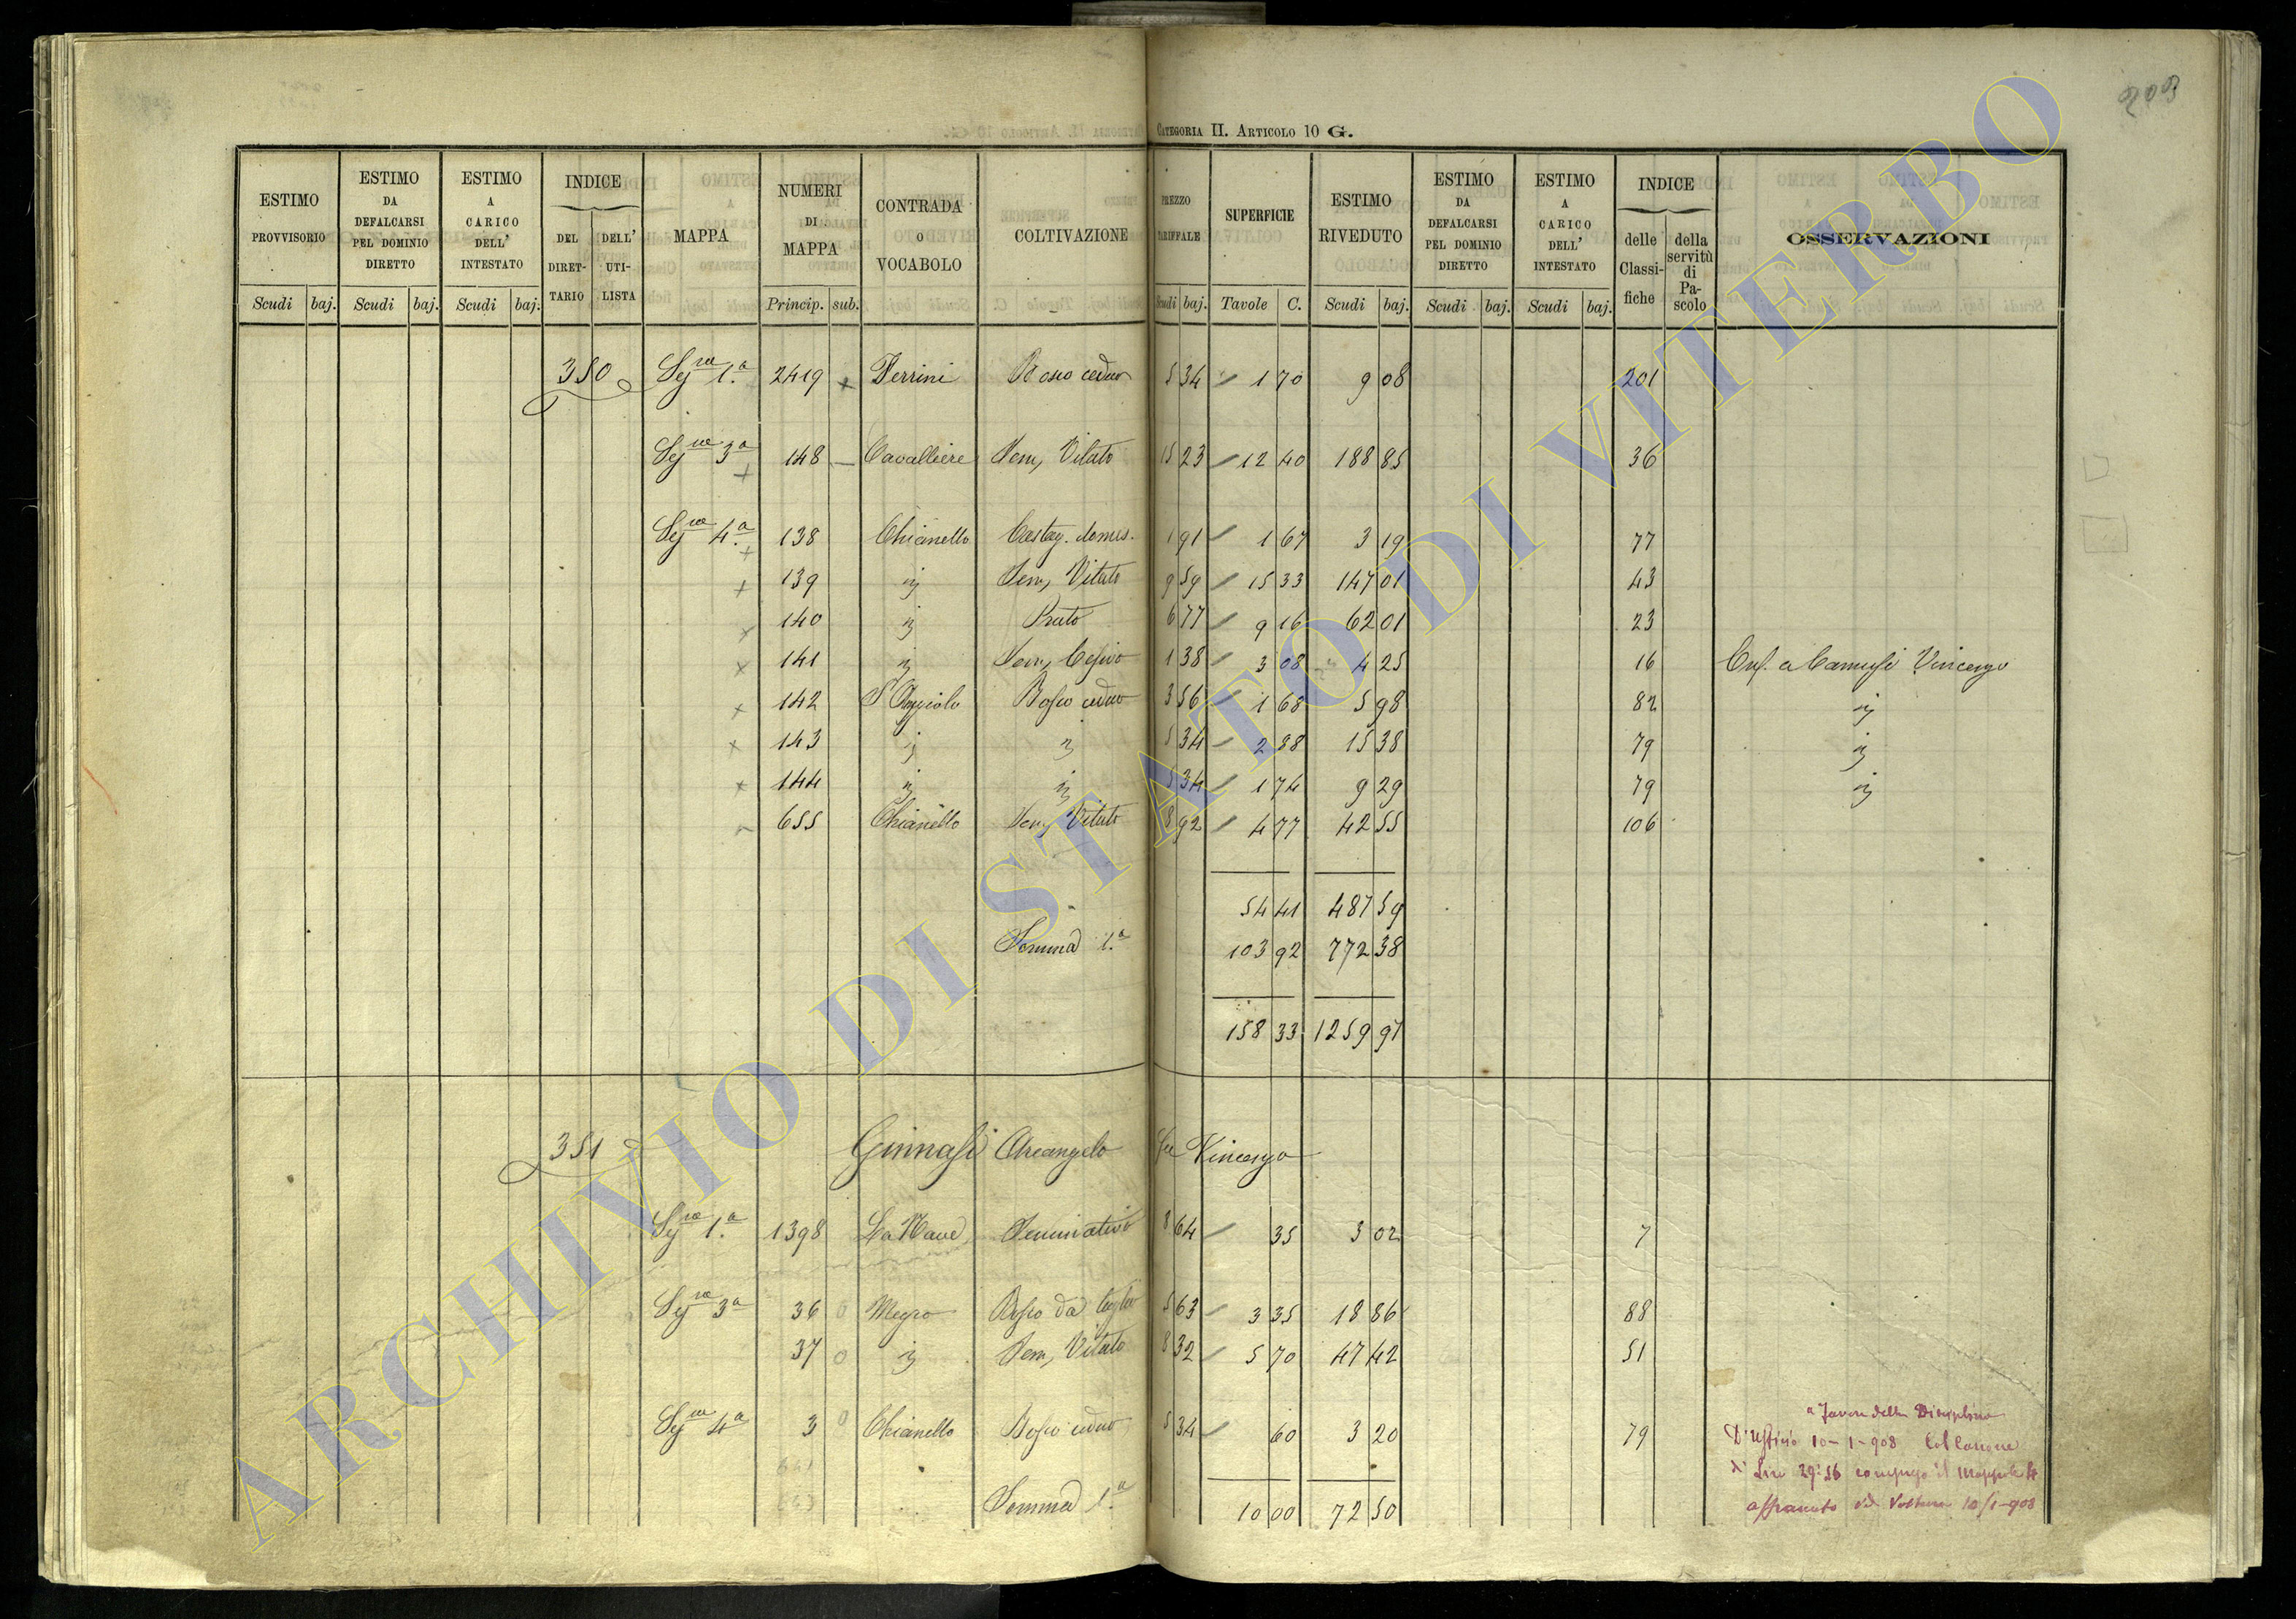 203
CATEGORIA II. ARTICOLO 10 G.
ESTIMO PROVVISORIO Scudi baj.
ESTIMO DA DEFALCARSI PEL DOMINIO DIRETTO Scudi baj.
ESTIMO A CARICO DELL' INTESTATO Scudi baj.
INDICE DEL DIRETTARIO DELL' UTILISTA
MAPPA
NUMERI DI MAPPA Princip. sub.
CONTRADA O VOCABOLO
COLTIVAZIONE
PREZZO TARIFFALE Scudi baj.
SUPERFICIE Tavole C.
ESTIMO RIVEDUTO Scudi baj.
ESTIMO DA DEFALCARSI PEL DOMINIO DIRETTO Scudi baj.
ESTIMO A CARICO DELL' INTESTATO Scudi baj.
INDICE delle Classifiche della servitù di Pascolo
OSSERVAZIONI
350 Sez.ne 1.a 2419 x Ferrini Bosco ceduo 5 34 1 70 9 08 201
Sez.ne 3a x 148 Cavalliere Sem, Vitato 15 23 12 40 188 85 36
Sez.ne 4.a x 138 Chianello Castag. domes. 1 91 1 67 3 19 77
x 139 Sem, Vitato 9 59 15 33 147 01 43
x 140 Prato 6 77 9 16 62 01 23
x 141 Sem, Cesivo 1 38 3 08 4 25 16 Enf. a Camusi Vincenzo
x 142 Bosco ceduo 3 56 1 68 5 98 82
x 143 5 34 2 88 15 38 79
x 144 5 34 1 74 9 29 79
655 Chianello Sem, Vitato 8 92 4 77 42 55 106
54 41 487 59
Somma 1.a 103 92 772 38
158 33 1259 97
351 Ginnasi Arcangelo fu Vincenzo
Sez.ne 1.a 1398 La Nave Seminativo 8 64 35 3 02 7
Sez.ne 3a 36 0 Megro Bosco da taglio 5 63 3 35 18 86 88
37 0 Sem, Vitato 8 32 5 70 47 42 51
Sez.ne 4a 3 0 Chianello Bosco ceduo 5 34 60 3 20 79
a favore della Disciplina
D'Ufficio 10-1-908 Col Canone
di Lire 29:56 compreso il Mappale 4
affrancato Voltura 10/1-908
Somma 1.a 10 00 72 50
ARCHIVIO DI STATO DI VITERBO